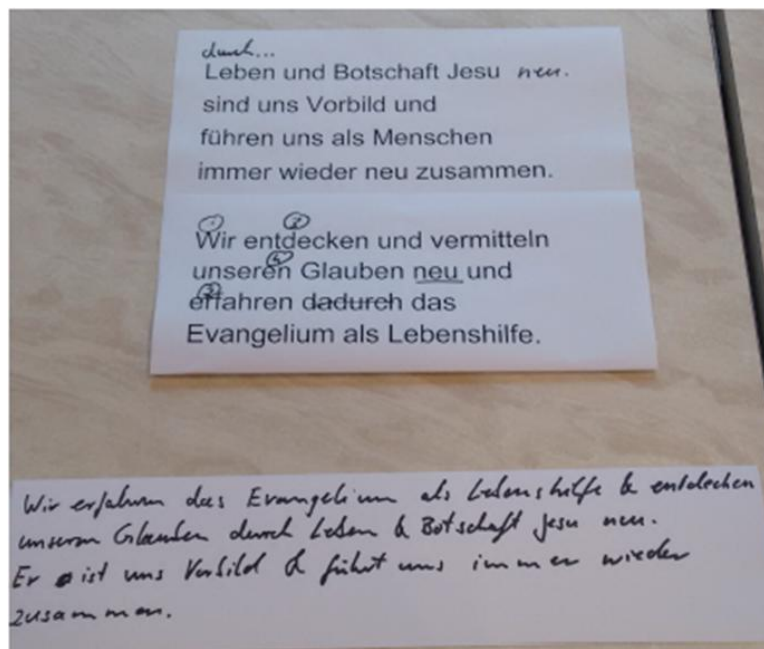 durch...
Leben und Botschaft Jesu neu.
sind uns Vorbild und
führen uns als Menschen
immer wieder neu zusammen.
Wir entdecken und vermitteln
unseren Glauben neu und
erfahren dadurch das
Evangelium als Lebenshilfe.
Wir erfahren das Evangelium als Lebenshilfe & entdecken
unseren Glauben durch Leben & Botschaft Jesu neu.
Er ist uns Vorbild & führt uns immer wieder
zusammen.